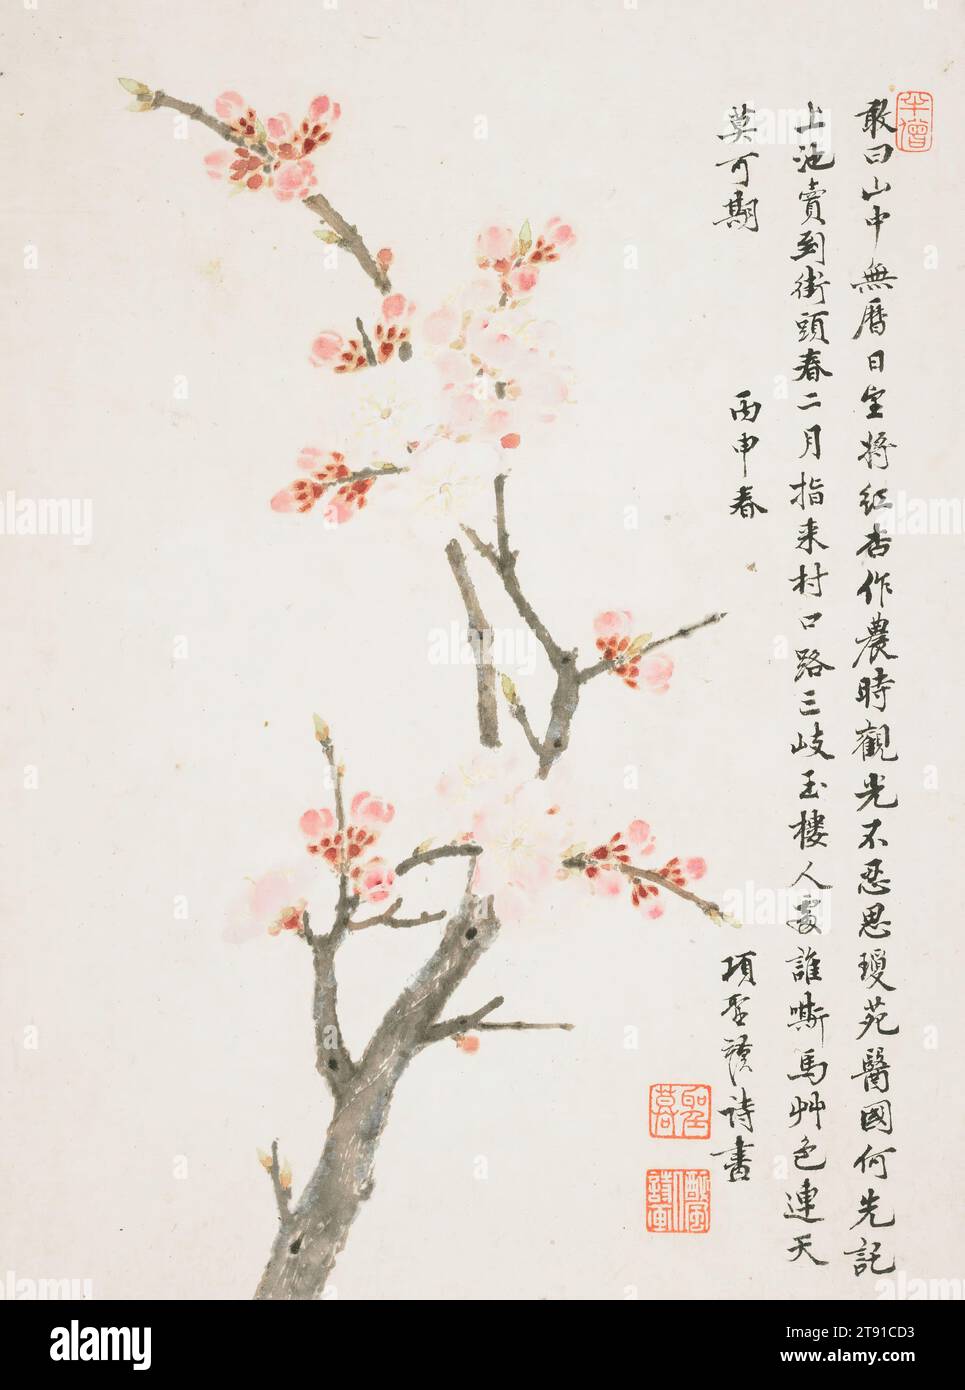 敢曰山中無曆日宜將紅杏作農時觀光不忍思瓊苑醫國何先託
上池賣到街頭春二月指來村口路三岐玉樓人
誰嘶馬艸色連天
莫可期
丙申春
項聖謨詩畫
半僧
聖
詩畫
alamy
Image ID: 2T91CD3
www.alamy.com